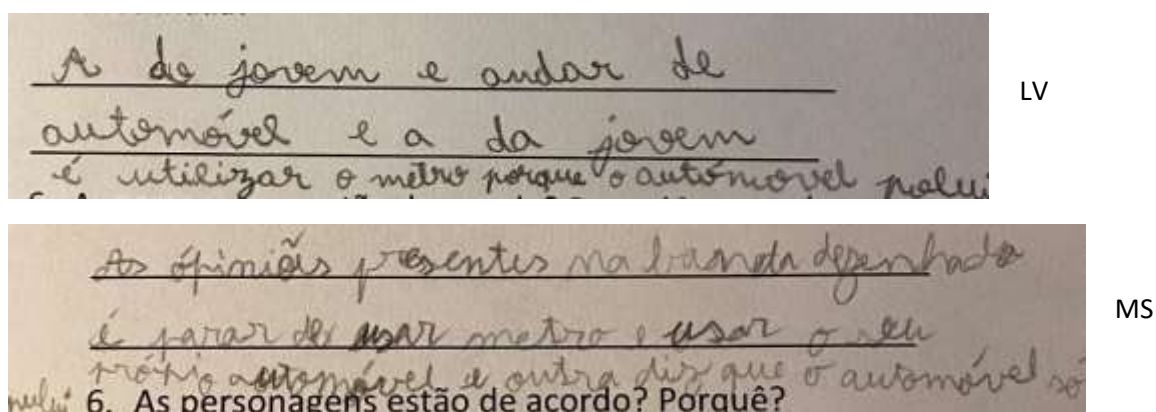 A do jovem e andar de
LV
automóvel e a da jovem
é utilizar o metro porque o autómovel polui
As ópiniões presentes na banda dezenhada
MS
é parar de usar metro e usar o seu
próprio automóvel e outra diz que o automóvel só
polui 6. As personagens estão de acordo? Porquê?